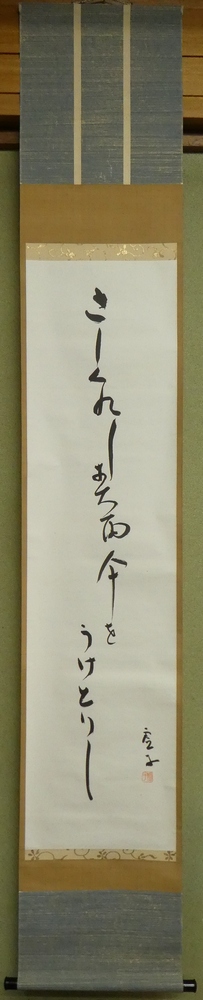 さしくれし春雨傘を
うけとりし
虚子